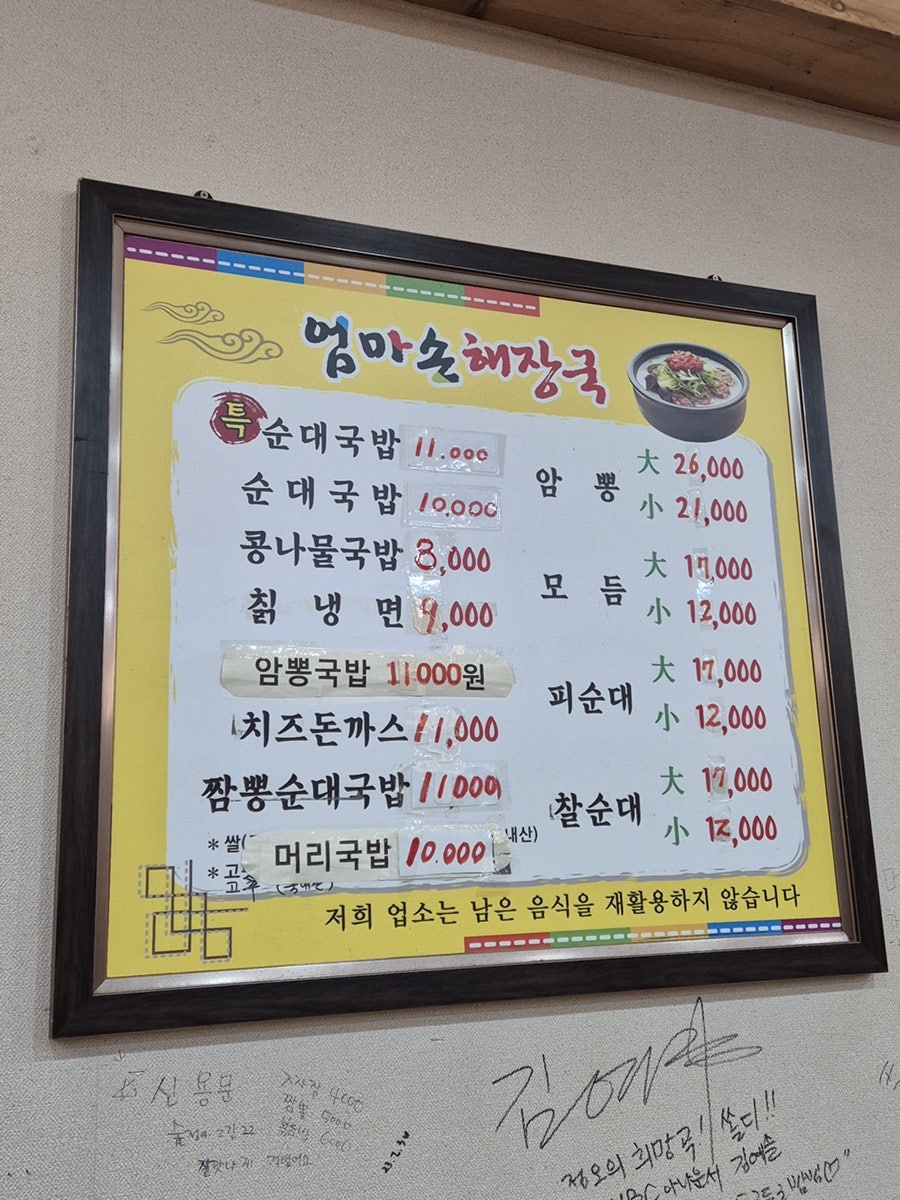 엄마손해장국
특 순대국밥 11.000
순대국밥 10.000
콩나물국밥 8,000
칡냉면 9,000
암뽕국밥 11000원
치즈돈까스 11,000
짬뽕순대국밥 11,000
머리국밥 10.000
암뽕 大 26,000
小 21,000
모듬 大 17,000
小 12,000
피순대 大 17,000
小 12,000
찰순대 大 17,000
小 12,000
* 쌀( 내산)
* 고
저희 업소는 남은 음식을 재활용하지 않습니다
신용문
4000
짬뽕 5000
6000
정오의 희망곡! 쏠디!!
아나운서 김예솔